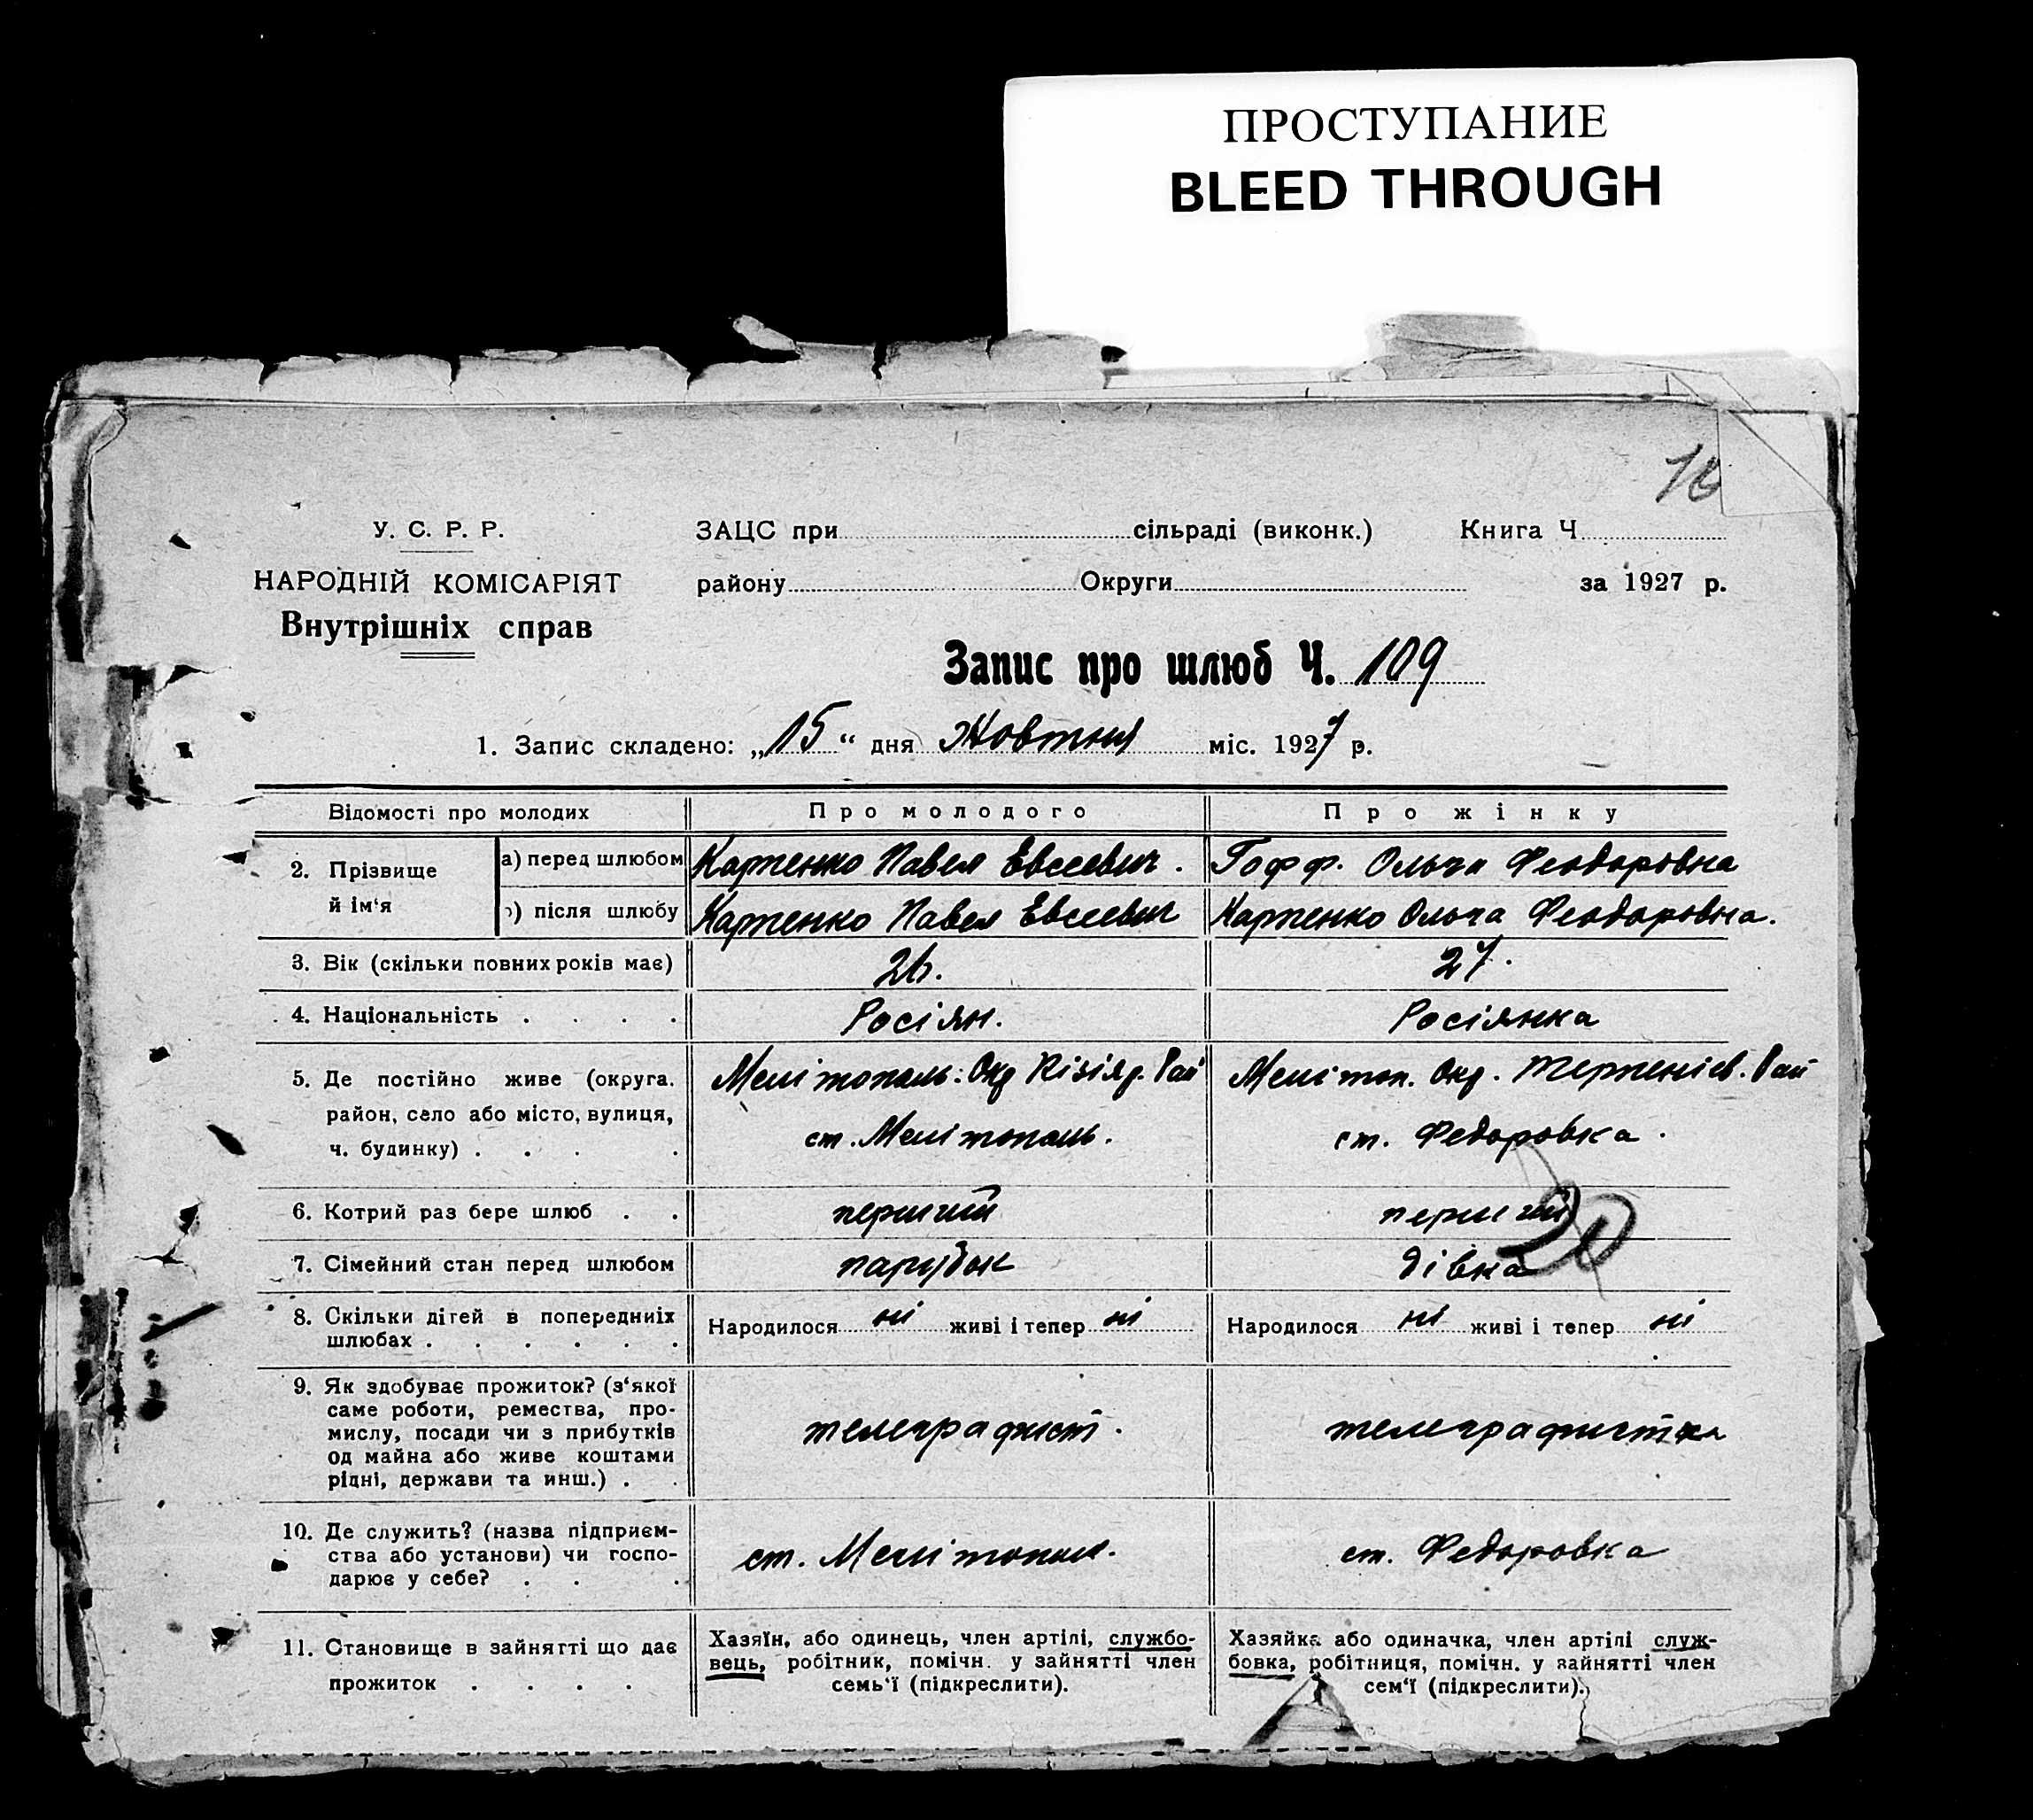 ПРОСТУПАНИЕ
BLEED THROUGH
16
У. С. Р. Р.
НАРОДНІЙ КОМІСАРІЯТ
Внутрішніх справ
ЗАЦС при сільраді (виконк.) Книга Ч
району Округи за 1927 р.
Запис про шлюб Ч. 109
1. Запис складено: „15“ дня Жовтня міс. 1927 р.
Відомості про молодих
Про молодого
Про жінку
2. Прізвище й ім‘я
а) перед шлюбом
Карпенко Павел Евсеевич.
Гофф. Ольга Феодоровна
) після шлюбу
Карпенко Павел Евсеевич
Карпенко Ольга Феодоровна.
3. Вік (скільки повних років має)
26.
27.
4. Національність . . . .
Росіян.
Росіянка
5. Де постійно живе (округа.
район, село або місто, вулиця,
ч. будинку) . . . .
Мелітополь: Окр Кізіяр. Рай
ст. Мелітополь.
Меліт��п. Окр. Терпеніев. Рай
ст. Федоровка.
6. Котрий раз бере шлюб . .
перший
перший
7. Сімейний стан перед шлюбом
парубок
дівка
8. Скільки дітей в попередніх
шлюбах . . . . . .
Народилося ні живі і тепер ні
Народилося ні живі і тепер ні
9. Як здобуває прожиток? (з‘якої
саме роботи, ремества, про-
мислу, посади чи з прибутків
од майна або живе коштами
рідні, держави та инш.) . .
телеграфист.
телеграфистка
10. Де служить? (назва підприєм-
ства або установи) чи госпо-
дарює у себе? . . .
ст. Мелітополь.
ст. Федоровка
11. Становище в зайнятті що дає
прожиток . . . .
Хазяїн, або одинець, член артілі, службо-
вець, робітник, помічн. у зайнятті член
семь‘ї (підкреслити).
Хазяйка або одиначка, член артілі служ-
бовка, робітниця, помічн. у зайнятті член
сем‘ї (підкреслити).